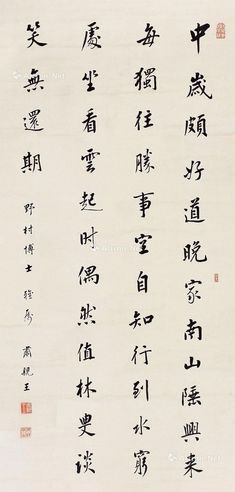 中歲頗好道晚家南山陲興来
每獨往勝事空自知行到水窮
處坐看雲起时偶然值林叟談
笑無還期
野村博士雅属 肅親王